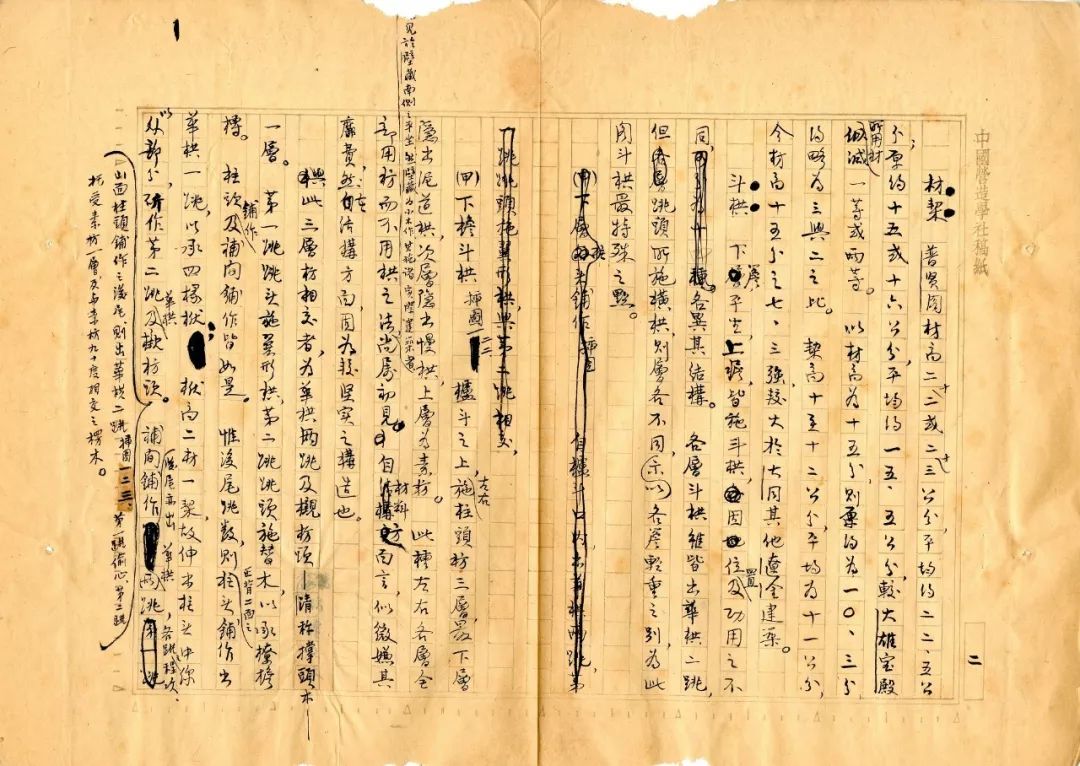 中國營造學社稿紙
二
材栔 普賢閣材高二十二或二十三公分,平均約二二·五公
分,厚約十五或十六公分,平均約一五·五公分,較大雄宝殿
所用材
低減一等或兩等。以材高為十五分,則栔約為一〇·三分
約略為三與二之比。栔高十至十二公分,平均為十一公分,
合材高十五分之七·三強,較大於大同其他遼金建築。
斗栱 下簷平坐上簷,皆施斗栱,因位置及功用之不
同,各異其結構。各層斗栱雖皆出華栱二跳,
但跳頭所施橫栱,則層各不同,示以各層輕重之別,為此
閣斗栱最特殊之點。
(甲)下層 補鋪作 插圖 自櫨斗口內出華栱兩跳,第
一跳跳頭施翼形栱,與第二跳相交,
(甲)下檐斗栱 插圖二二 櫨斗之上,施柱頭枋三層,最下層
左右
隱出泥道栱,次層隱出慢栱,上層為素枋。此種左右各層全
見於壁藏南側之平坐
即用枋而不用栱之法,尚屬初見。自材料方面言,似微嫌其
靡費,然在結構方面,固為較堅实之構造也。
與此三層枋相交者,為華栱兩跳及襯枋頭—清称撑頭木—
一層。第一跳跳头施翼形栱,第二跳跳頭施替木,以承橑檐
槫。柱頭及補間鋪作皆如是。惟後尾跳数,則柱头鋪作出
鋪作
正背二面之
華栱一跳,以承四椽栿;栿高二材一栔,故伸出柱头中綫
以外部分,斫作第二跳華栱及襯枋頭。補間鋪作後尾亦出華栱兩跳,
山面柱頭鋪作之後尾,則出華栱二跳 插圖一二三,第一跳偷心,第二跳
托受素枋一層,及与素枋九十度相交之楞木。